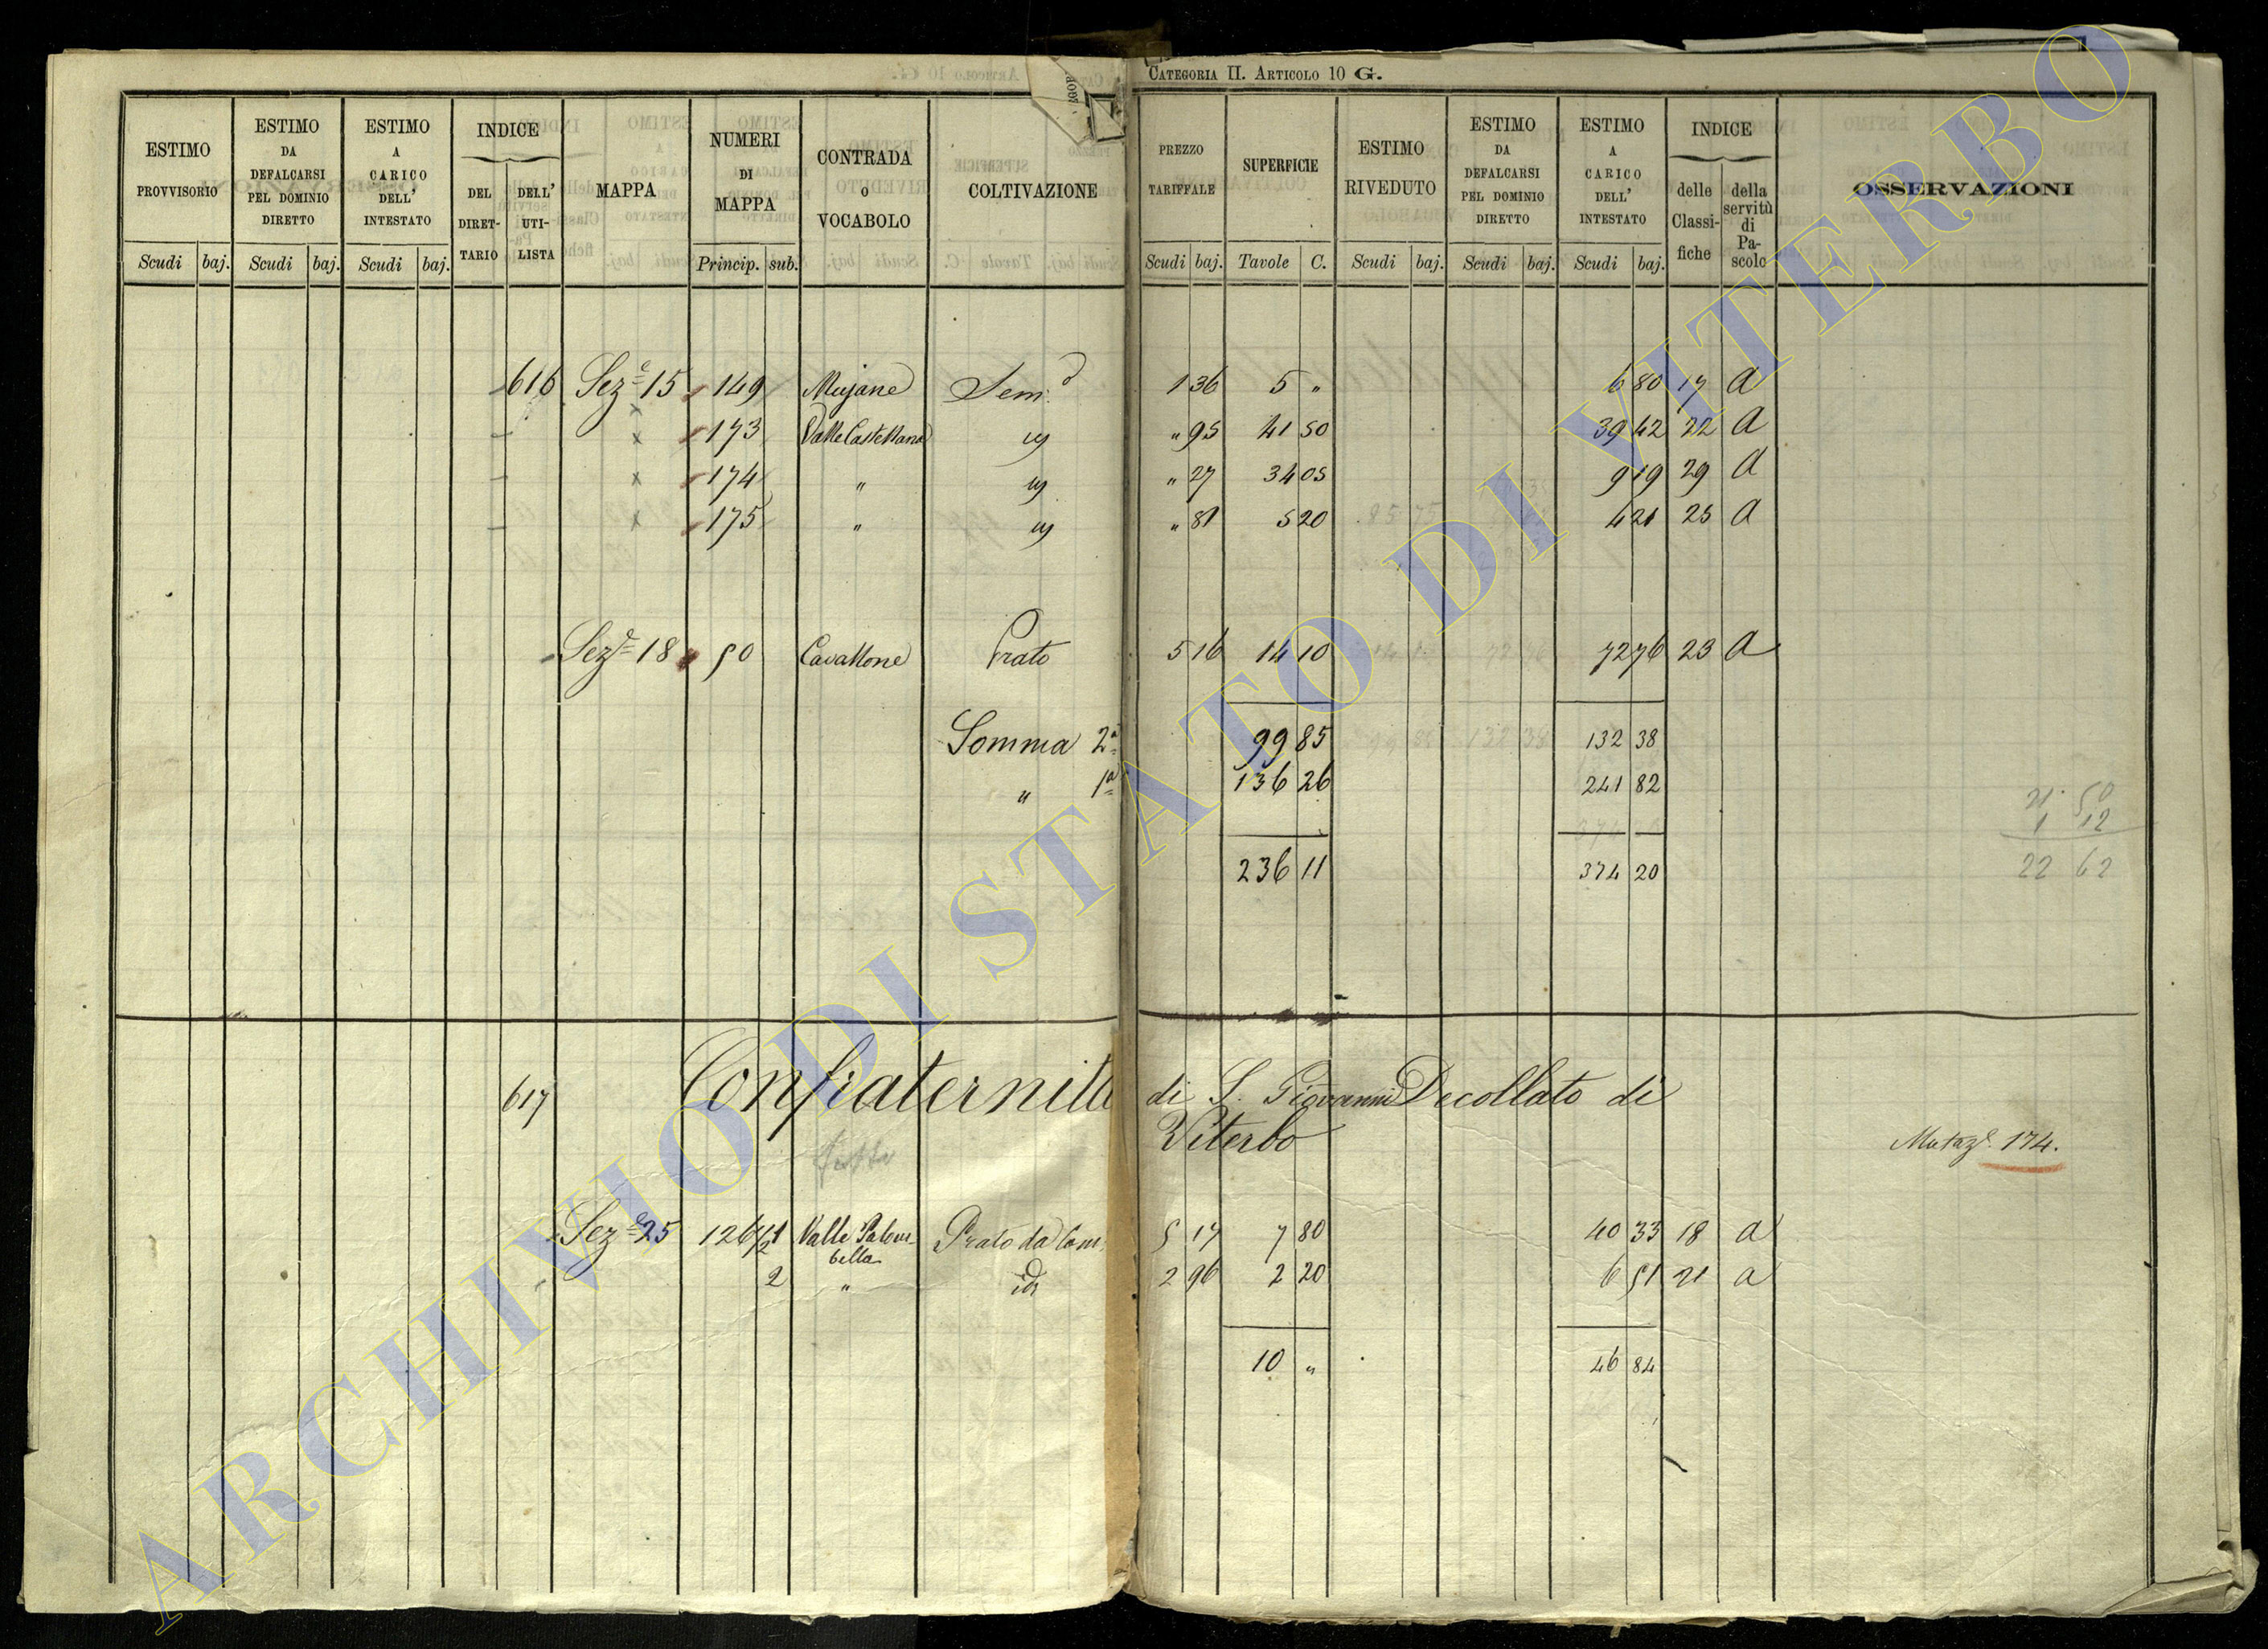 CATEGORIA II. ARTICOLO 10 G.
ESTIMO PROVVISORIO
ESTIMO DA DEFALCARSI PEL DOMINIO DIRETTO
ESTIMO A CARICO DELL' INTESTATO
INDICE
DEL DIRETTARIO
DELL' UTILISTA
MAPPA
NUMERI DI MAPPA
CONTRADA O VOCABOLO
COLTIVAZIONE
PREZZO TARIFFALE
SUPERFICIE
ESTIMO RIVEDUTO
ESTIMO DA DEFALCARSI PEL DOMINIO DIRETTO
ESTIMO A CARICO DELL' INTESTATO
INDICE
delle Classifiche
della servitù di Pascolo
OSSERVAZIONI
Scudi baj. Scudi baj. Scudi baj. Princip. sub. Scudi baj. Tavole C. Scudi baj. Scudi baj. Scudi baj.
616 Sez.e 15 149 Mujane Sem.o 1 36 5 " 6 80 17 a
x 173 Valle Castellana id " 95 41 50 39 42 22 a
x 174 " id " 27 34 05 9 19 29 a
x 175 " id " 81 5 20 4 21 25 a
Sez.e 18 50 Cavallone Prato 5 16 14 10 72 76 23 a
Somma 2a 99 85 132 38
" 1a 136 26 241 82
236 11 374 20
21 50
1 12
22 62
617 Confraternita di S. Giovanni Decollato di
Viterbo
Mutaz.e 174.
Sez.e 25 126 1/2 1 Valle Palom- Prato da Com. 5 17 7 80 40 33 18 a
bella
2 " id 2 96 2 20 6 51 21 a
10 " 46 84
ARCHIVIO DI STATO DI VITERBO